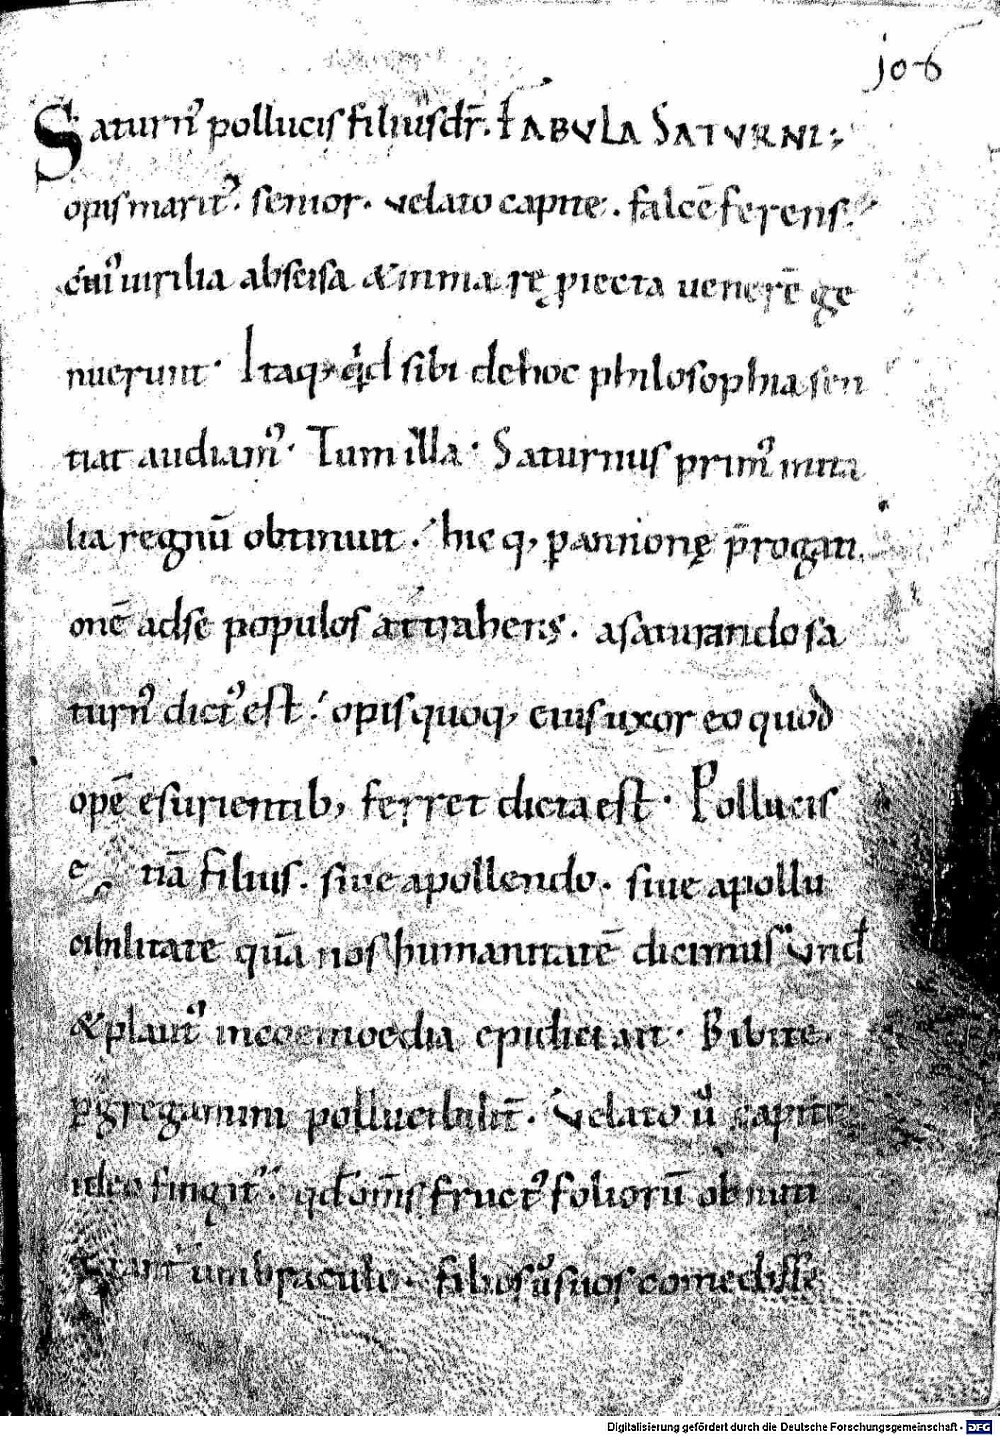 106
Saturn᾿ pollucis filius dr̄. FABULA SATURNI;
opis marit᾿. senior. velato capite. falcē ferens.
cui᾿ uirilia abscisa & in marę ꝓiecta uenerē ge
nuerunt. Itaq; qͥd sibi de hoc philosophia sen
tiat audiam᾿. Tum illa. Saturnus prim᾿ in ita
lia regnū obtinuit. hic q; ꝑ annonę p̄rogati
onē ad se populos attrahens. a saturando sa
turn᾿ dict᾿ est. opis quoq; eius uxor eo quod
opē esurientib; ferret dicta est. Pollucis
e nā filius. siue a pollendo. siue a pollu
cibilitate quā nos humanitatē dicimus Und̄
& plaut᾿ in comoedia epidici ait. Bibite
ꝑgregamini pollucibilit̄. Velato ū capite
ideo fingit᾿. qđ om̄s fruct᾿ foliorū obnun
umbraculo. filios ũ suos comedisse
Digitalisierung gefördert durch die Deutsche Forschungsgemeinschaft - DFG